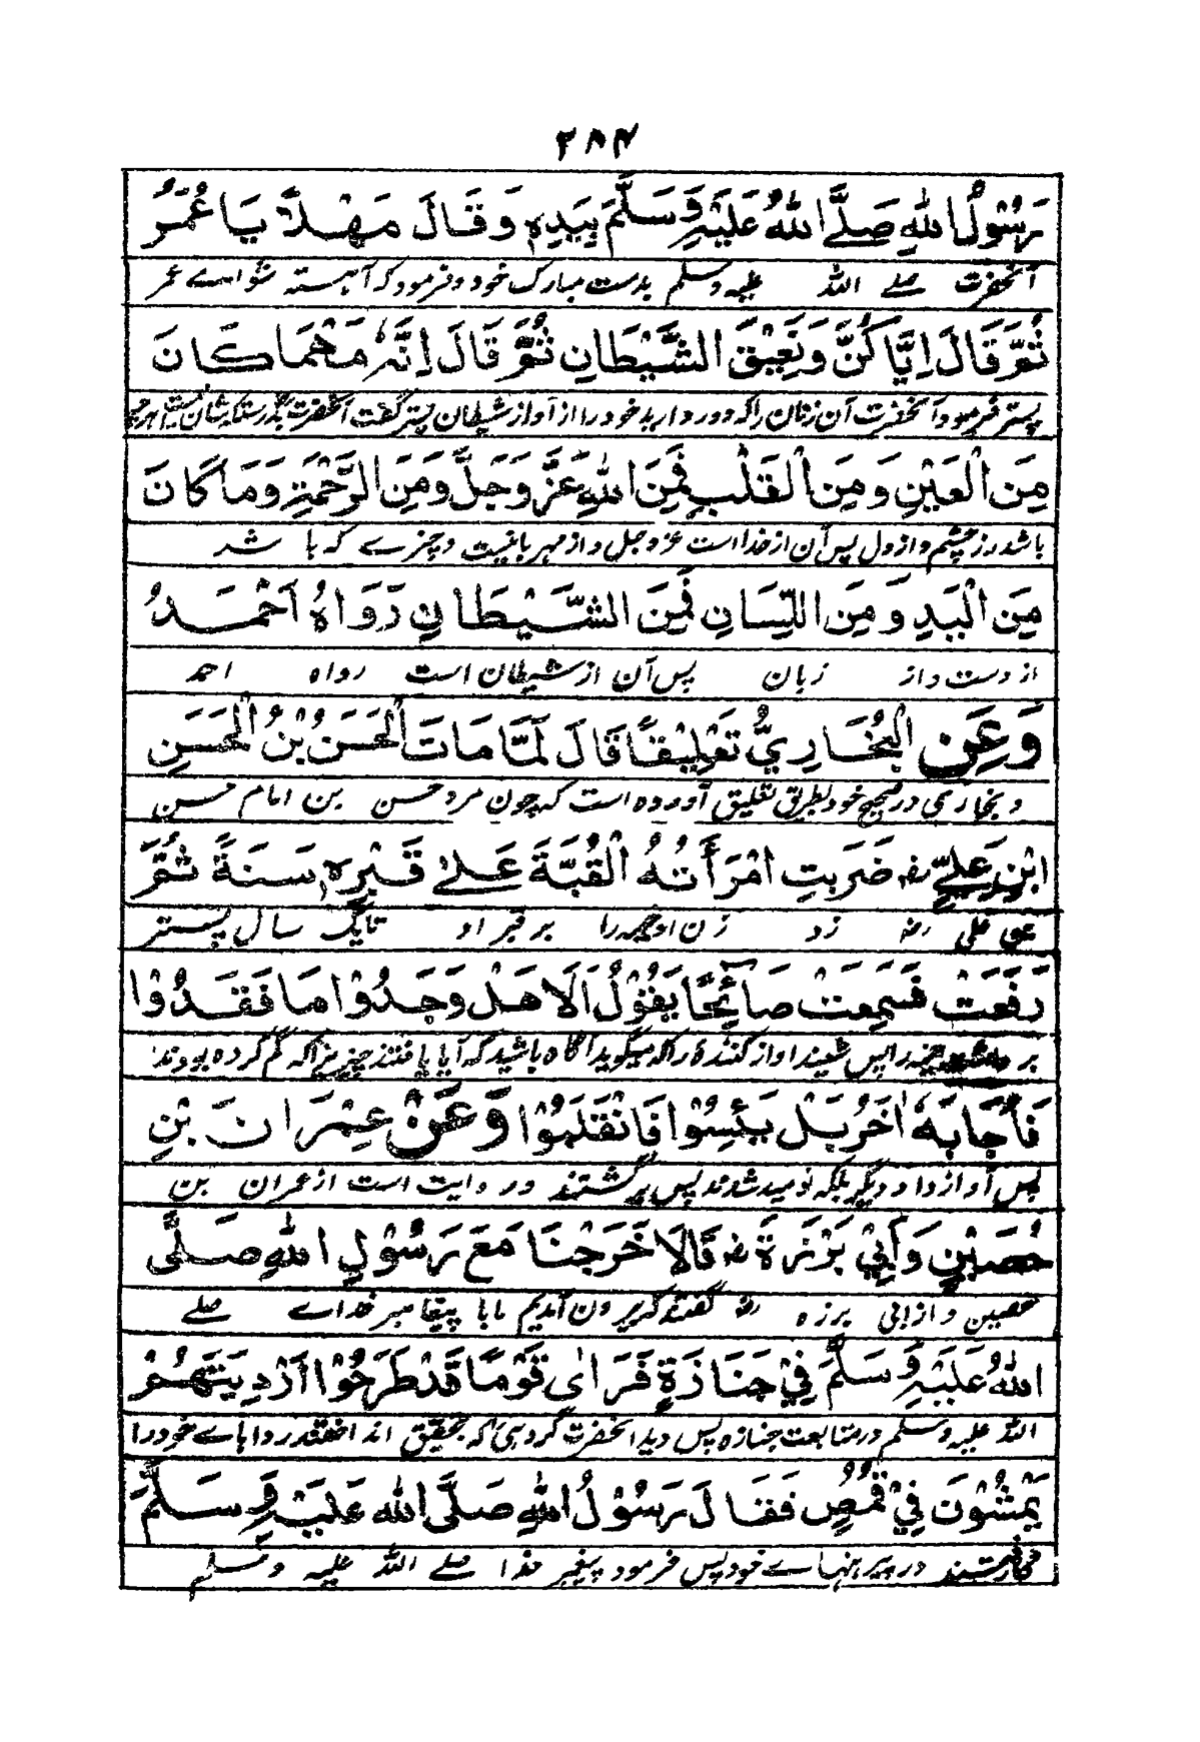 ۲۸۴
رَسُوْلُ اللهِ صَلَّے اللهُ عَلَیْہِ وَسَلَّمَ بِیَدِہٖ وَقَالَ مَهْلًا یَا عُمَرُ
آنحضرت صلے اللہ علیہ وسلم بدست مبارک خود و فرمود کہ آہستہ شو اے عمر
ثُمَّ قَالَ اِیَّاکُنَّ وَنَعِیْقَ الشَّیْطَانِ ثُمَّ قَالَ اِنَّهٗ مَهْمَا کَانَ
پستر فرمود آنحضرت آن زنان را کہ دور دارید خود را از آواز شیطان پستر گفت آنحضرت
مِنَ الْعَیْنِ وَمِنَ الْقَلْبِ فَمِنَ اللهِ عَزَّ وَجَلَّ وَمِنَ الرَّحْمَةِ وَمَا کَانَ
باشد از چشم و از دل پس آن از خدا است عز و جل و از مہربانیست و چیزے کہ باشد
مِنَ الْیَدِ وَمِنَ اللِّسَانِ فَمِنَ الشَّیْطَانِ رَوَاهُ اَحْمَدُ
از دست و از زبان پس آن از شیطان است رواہ احمد
وَعَنِ الْبُخَارِیِّ تَعْلِیْقًا قَالَ لَمَّا مَاتَ الْحَسَنُ بْنُ الْحَسَنِ
و بخاری در صحیح خود بطریق تعلیق آوردہ است کہ چون مرد حسن بن امام حسن
ابْنِ عَلِیٍّ رض ضَرَبَتِ امْرَأَتُهُ الْقُبَّةَ عَلٰے قَبْرِہٖ سَنَةً ثُمَّ
علی رض زد زن او خیمہ را بر قبر او تا یک سال پستر
رَفَعَتْ فَسَمِعَتْ صَائِحًا یَقُوْلُ اَلَا هَلْ وَجَدُوْا مَا فَقَدُوْا
خیمہ را پس شنید آواز کنندۂ را کہ میگوید آگاہ باشید کہ آیا یافتند چیزیرا کہ گم کردہ بودند
فَأَجَابَهٗ اٰخَرُ بَلْ یَئِسُوْا فَانْقَلَبُوْا وَعَنْ عِمْرَانَ بْنِ
پس آواز داد دیگر بلکہ نومید شدند پس برگشتند و روایت است از عمران بن
حُصَیْنٍ وَاَبِیْ بَرْزَةَ رض قَالَا خَرَجْنَا مَعَ رَسُوْلِ اللهِ صَلَّی
حصین و از ابی برزہ رض گفتند کہ بیرون آمدیم ما با پیغامبر خداے صلے
اللهُ عَلَیْہِ وَسَلَّمَ فِیْ جَنَازَةٍ فَرَاٰی قَوْمًا قَدْ طَرَحُوْا اَرْدِیَتَهُمْ
اللہ علیہ وسلم در متابعت جنازہ پس دید آنحضرت گروہی کہ بتحقیق انداختند رداہاے خود را
یَمْشُوْنَ فِیْ قُمُصٍ فَقَالَ رَسُوْلُ اللهِ صَلَّی اللهُ عَلَیْہِ وَسَلَّمَ
در پیرہنہاے خود پس فرمود پیغمبر خدا صلے اللہ علیہ وسلم